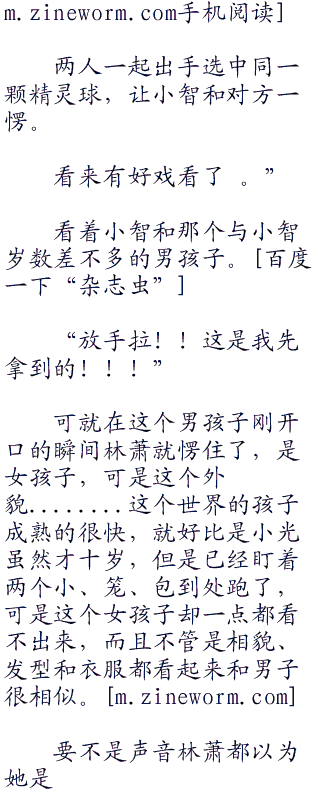 m.zineworm.com手机阅读]
两人一起出手选中同一
颗精灵球，让小智和对方一
愣。
看来有好戏看了 。”
看着小智和那个与小智
岁数差不多的男孩子。[百度
一下“杂志虫”]
“放手拉！！这是我先
拿到的！！！”
可就在这个男孩子刚开
口的瞬间林萧就愣住了，是
女孩子，可是这个外
貌........这个世界的孩子
成熟的很快，就好比是小光
虽然才十岁，但是已经盯着
两个小、笼、包到处跑了，
可是这个女孩子却一点都看
不出来，而且不管是相貌、
发型和衣服都看起来和男子
很相似。[m.zineworm.com]
要不是声音林萧都以为
她是